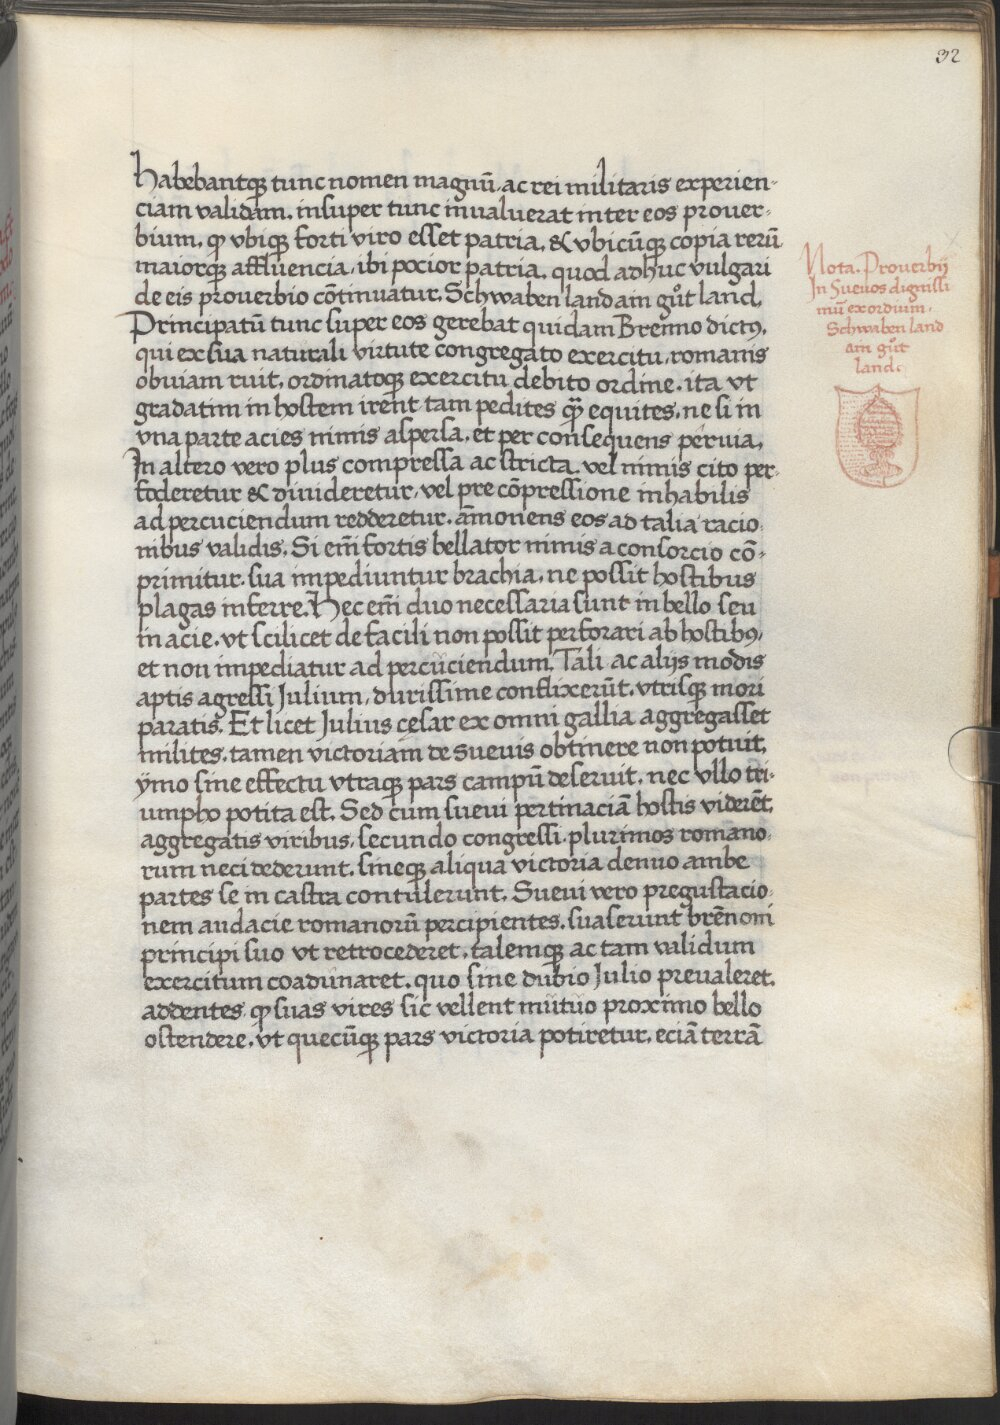 32
habebantqꝫ tunc nomen magnū. ac rei militaris experien-
ciam validam. insuper tunc invaluerat inter eos prouer-
bium, ꝙ vbiqꝫ forti viro esset patria, & vbicūqꝫ copia rerū
maiorqꝫ affluencia, ibi pocior patria. quod adhuc vulgari
de eis prouerbio cōtinuatur. Schwaben land ain gůt land,
Principatū tunc super eos gerebat quidam Brenno dictꝰ,
qui ex sua naturali virtute congregato exercitu, romanis
obuiam ruit, ordinatoqꝫ exercitu debito ordine. ita vt
gradatim in hostem irent tam pedites qꝫ̄ equites, ne si in
vna parte acies nimis aspersa, et per consequens peruia,
In altero vero plus compressa ac stricta. vel nimis cito per-
foderetur & diuideretur, vel pre cōpressione inhabilis
ad percuciendum redderetur. āmonens eos ad talia racio-
nibus validis. Si em̄ fortis bellator nimis a consorcio cō-
primitur. sua impediuntur brachia, ne possit hostibus
plagas inferre. Hec em̄ duo necessaria sunt in bello seu
in acie. vt scilicet de facili non possit perforari ab hostibꝰ,
et non impediatur ad percuciendum. Tali ac alijs modis
aptis agressi Julium, durissime conflixerūt. vtrisqꝫ mori
paratis. Et licet Julius cesar ex omni gallia aggregasset
milites. tamen victoriam de sueuis obtinere non potuit,
ymo sine effectu vtraqꝫ pars campū deseruit. nec vllo tri-
umpho potita est. Sed cum sueui pertinaciā hostis viderēt,
aggregatis viribus, secundo congressi. plurimos romano-
rum neci dederunt. sineqꝫ aliqua victoria denuo ambe
partes se in castra contulerunt. Sueui vero pregustacio-
nem audacie romanorū percipientes. suaserunt brēnoni
principi suo vt retrocederet, talemqꝫ ac tam validum
exercitum coadunaret. quo sine dubio Julio preualeret.
addentes ꝙ suas vires sic vellent mutuo proximo bello
ostendere. vt quecūqꝫ pars victoria potiretur. eciā terrā
Nota. Prouerbij
In Sueuos dignissi
mū exordium.
Schwaben land
ain gůt
land.